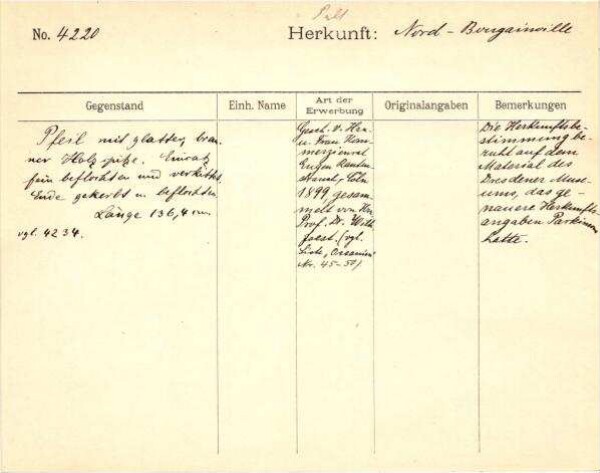 No. 4220
Herkunft: Nord-Bougainville
Gegenstand
Einh. Name
Art der
Erwerbung
Originalangaben
Bemerkungen
Pfeil mit glatter, brau-
ner Holzspitze. Einsatz
fein beflochten und verkittet.
Ende gekerbt u. beflochten.
Länge 136,4 cm
vgl. 4234.
Gesch. v. Hrn.
u. Frau Kom-
merzienrat
Eugen Rauten-
strauch, Köln
1899 gesam-
melt von Hrn.
Prof. Dr. Wilh.
Joest. (vgl.
Liste „Ozeanien"
Nr. 45-50)
Die Herkunftsbe-
stimmung be-
ruht auf dem
Material des
Dresdener Muse-
ums, das ge-
nauere Herkunfts-
angaben Parkinsons
hatte.